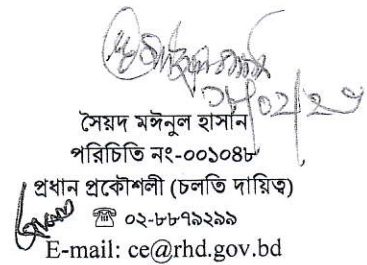 সৈয়দ মঈনুল হাসান
পরিচিতি নং-০০১০৪৮
প্রধান প্রকৌশলী (চলতি দায়িত্ব)
☎ ০২-৮৮৭৯২৯৯
E-mail: ce@rhd.gov.bd